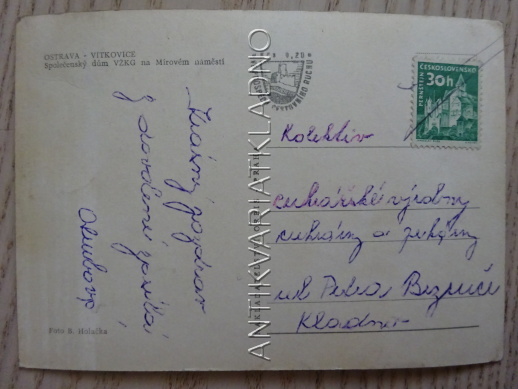 OSTRAVA - VÍTKOVICE
Společenský dům VŽKG na Mírovém náměstí
Krásný pozdrav
z dovolené zasílá
Foto S. Holuška
ANTIKVARIATKLADNO
ČESKOSLOVENSKO
PERNŠTEJN
30h
Kolektiv
cukrářské výrobny
cukrárny a pekárny
ul Petra Bezruče
Kladno